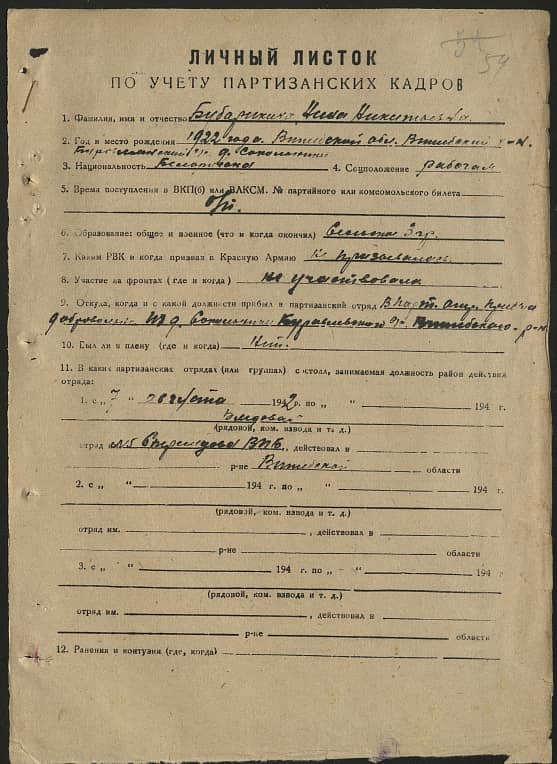 54
59
ЛИЧНЫЙ ЛИСТОК
ПО УЧЕТУ ПАРТИЗАНСКИХ КАДРОВ
1. Фамилия, имя и отчество Нина Никитьевна
2. Год и место рождения 1922 года. Витебской обл. Витебский р-н.
3. Национальность Белоруска 4. Соцположение рабочая
5. Время поступления в ВКП(б) или ВЛКСМ. № партийного или комсомольского билета
б/п.
6. Образование: общее и военное (что и когда окончил) 3 гр.
7. Каким РВК и когда призван в Красную Армию не призывалась
8. Участие на фронтах (где и когда) не участвовала
9. Откуда, когда и с какой должности прибыл в партизанский отряд В парт. отр.
добровольно из д. Витебского р-н
10. Был ли в плену (где и когда) Нет.
11. В каких партизанских отрядах (или группах) состоял, занимаемая должность район действия
отряда:
1. с „7“ августа 1942 г. по „ “ 194 г.
(рядовой, ком. взвода и т. д.)
отряд №5 ВПБ, действовал в
р-не Витебской области
2. с „ “ 194 г. по „ “ 194 г.
(рядовой, ком. взвода и т. д.)
отряд им. , действовал в
р-не области
3. с „ “ 194 г. по „ “ 194 г
(рядовой, ком. взвода и т. д.)
отряд им. , действовал в
р-не области
12. Ранения и контузии (где, когда)